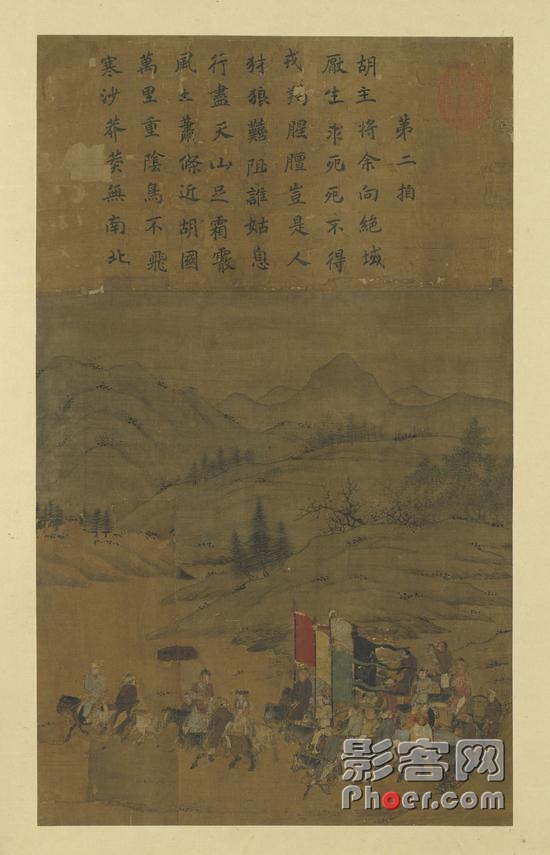 第二拍
胡主將余向絕域
厭生求死死不得
戎羯腥膻豈是人
犲狼難阻誰姑息
行盡天山足霜霰
風土蕭條近胡國
萬里重陰鳥不飛
寒沙莽莽無南北
影客网
Phoer.com